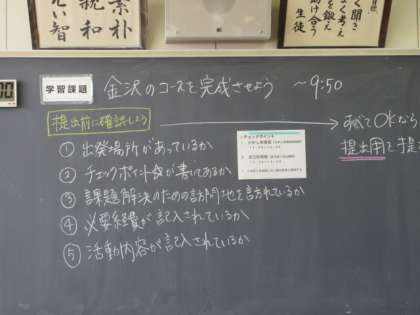 素朴
親和
い智
聞き
よく考え
を鍛え
け合う
生徒
00
学習課題
金沢のコースを完成させよう ～9:50
提出前に確認しよう
→ すべてOKなら
提出用を提
① 出発場所があっているか
② チェックポイント名が書いてあるか
③ 課題解決のための訪問地を訪れているか
④ 必要経費が記入されているか
⑤ 活動内容が記入されているか
チェックポイント